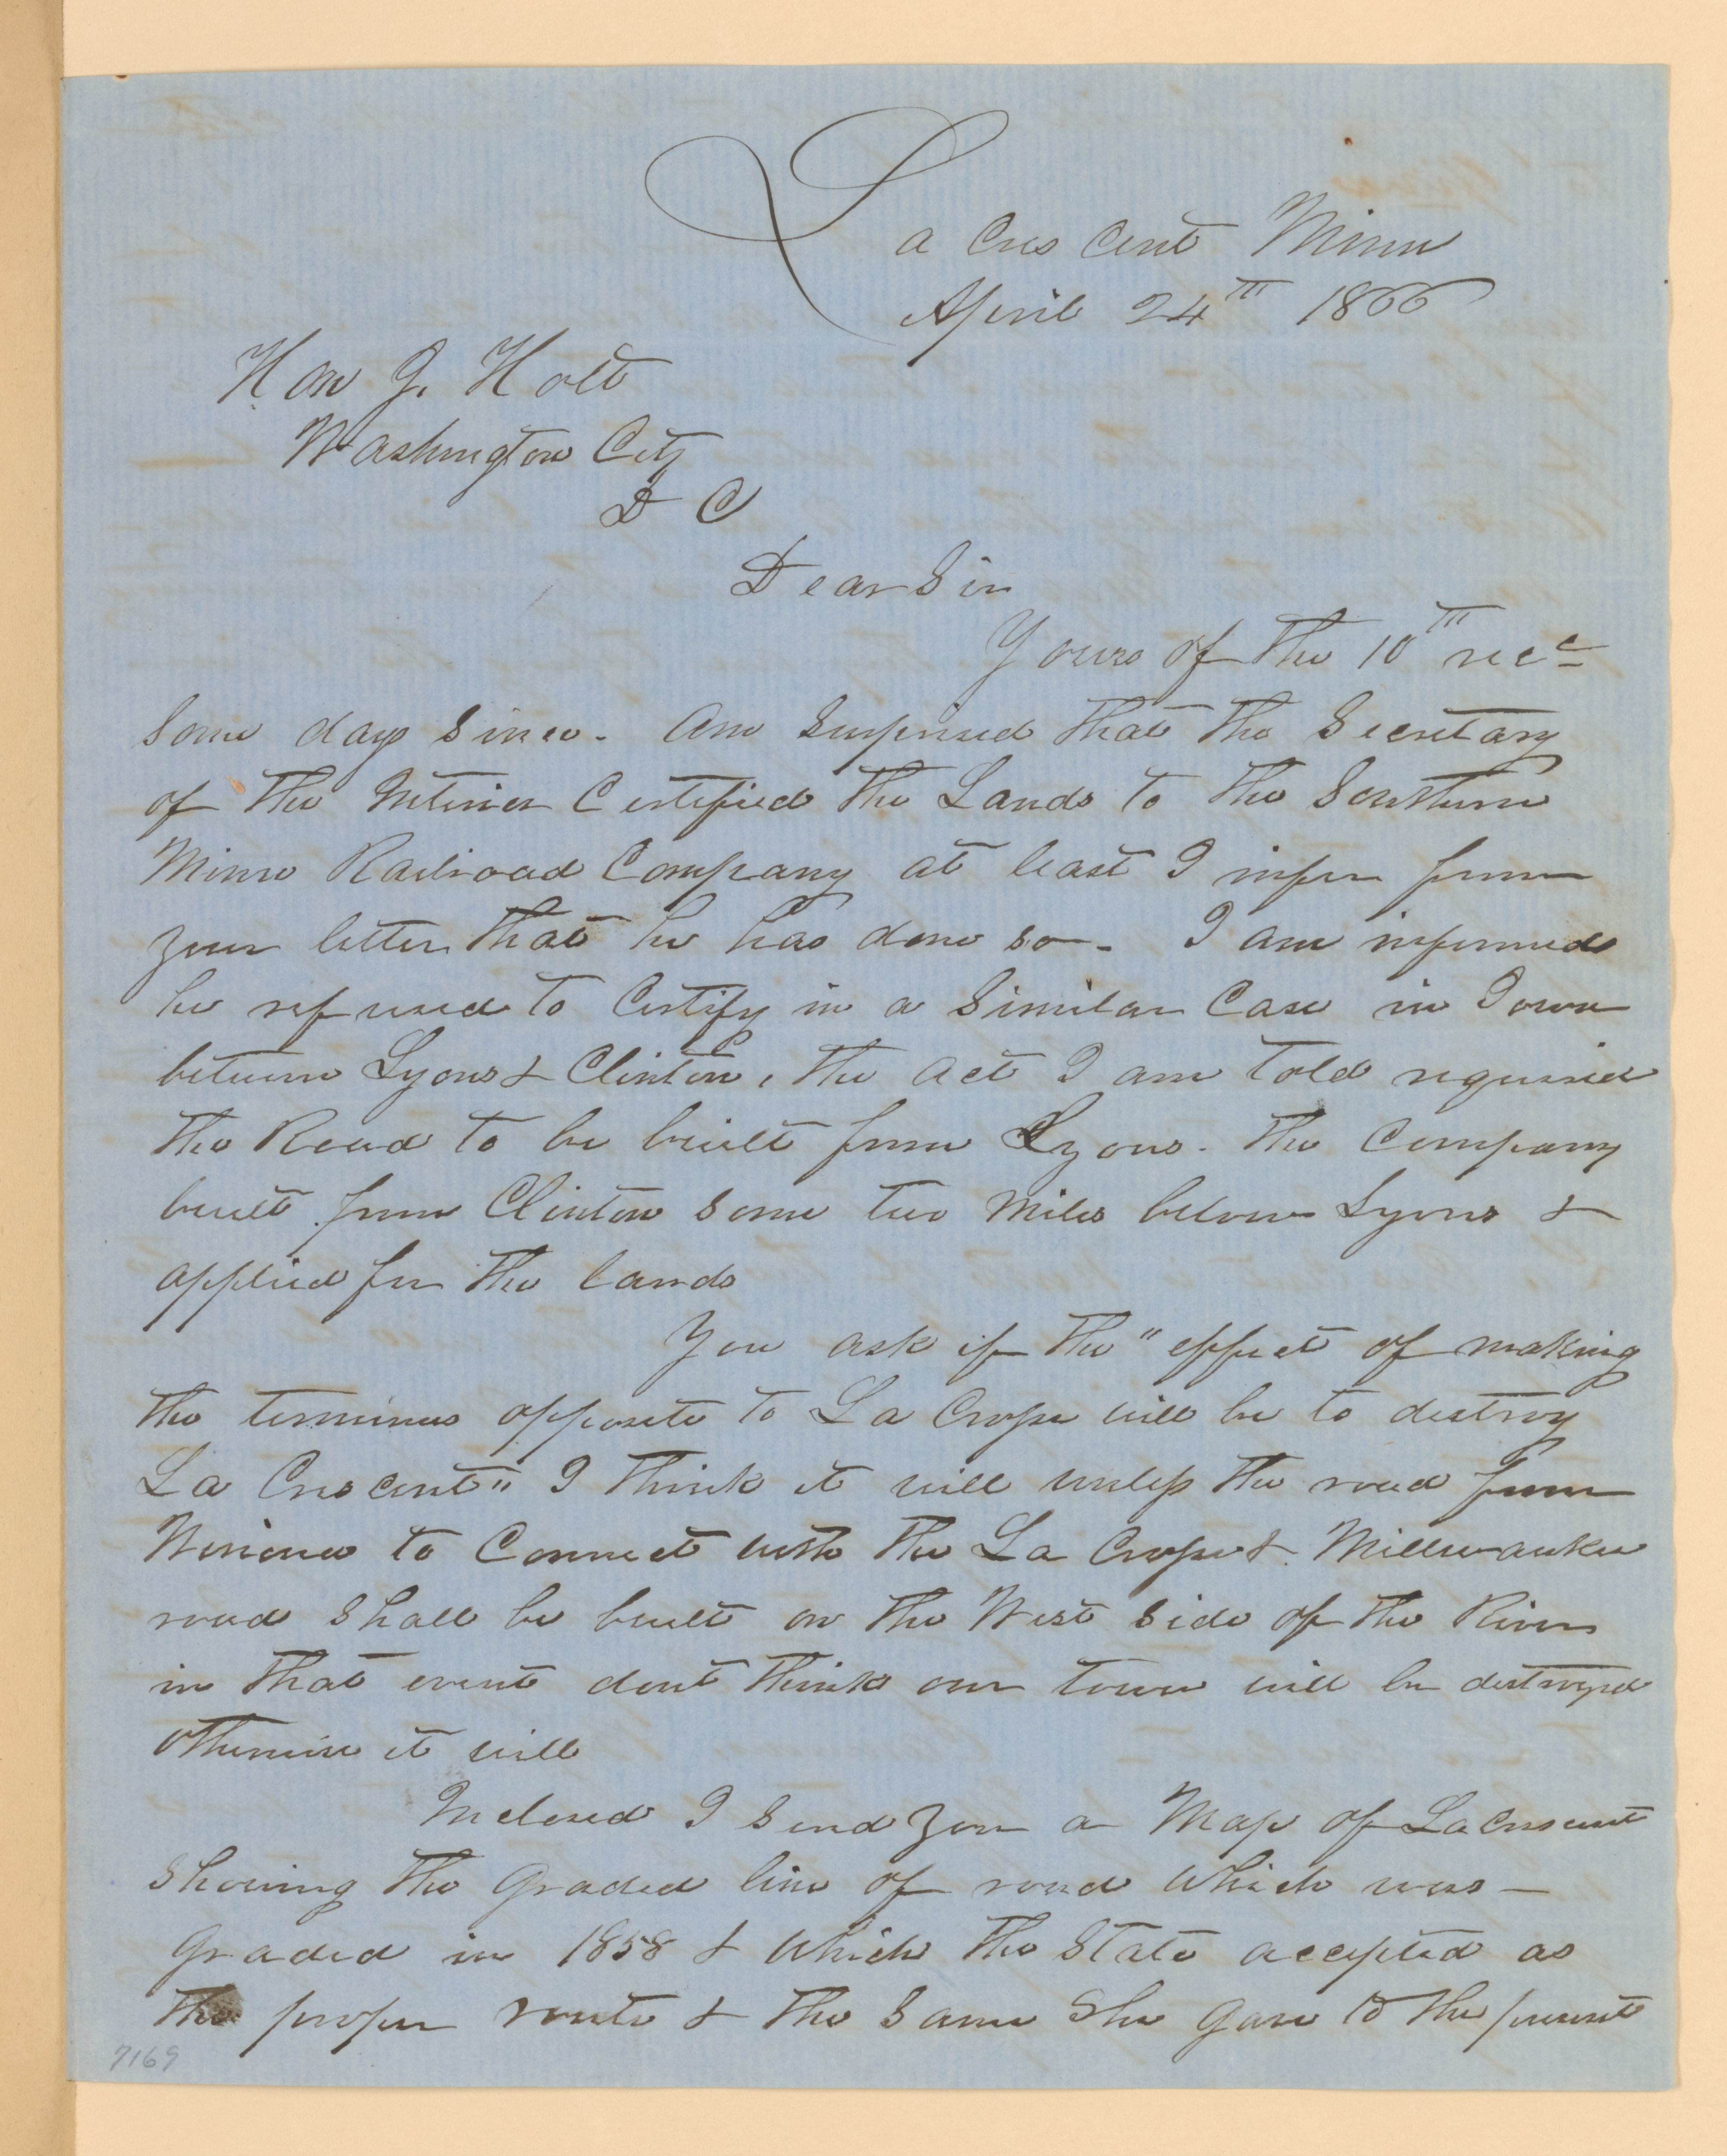 La Crescent Minn
April 24th 1866
Hon J. Holt
Washington City
D C
Dear Sir
Yours of the 10th recd
some days since. Am surprised that the Secretary
of the Interior Certified the Lands to the Southern
Minn Railroad Company at least I infer from
your letter that he has done so - I am informed
he refused to Certify in a Similar Case in Iowa
between Lyons & Clinton, the act I am told required
the Road to be built from Lyons. The Company
built from Clinton some two miles below Lyons &
applied for the lands
You ask if the "effect of making
the terminus opposite to La Crosse will be to destroy
La Crescent" I think it will unless the road from
Winona to Connect with the La Crosse & Millwaukee
road shall be built on the West side of the River
in that event dont think our town will be destroyed
otherwise it will
Inclosed I send you a Map of La Crescent
showing the Graded line of road which was -
Graded in 1858 & which the State accepted as
the proper route & the same she gave to the present
7169